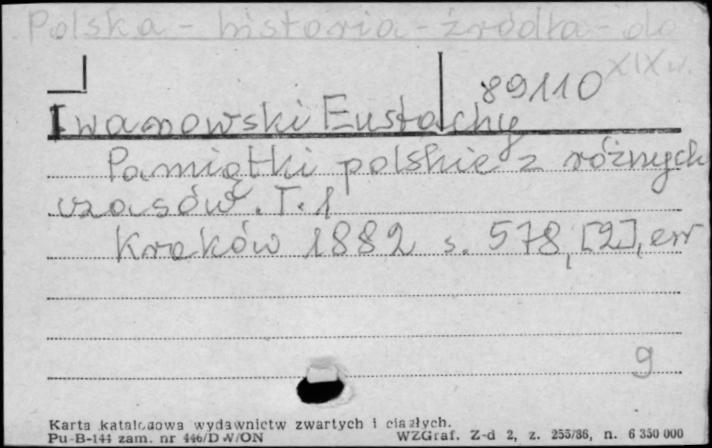 Polska - historia - źródła - do
XIX w.
89110
Iwanowski Eustachy
Pamiątki polskie z różnych
czasów. T. 1
Kraków 1882 s. 578, [2], err
9
Karta katalogowa wydawnictw zwartych i ciągłych.
Pu-B-144 zam. nr 446/D W/ON WZGraf. Z-d 2, z. 255/86, n. 6 350 000